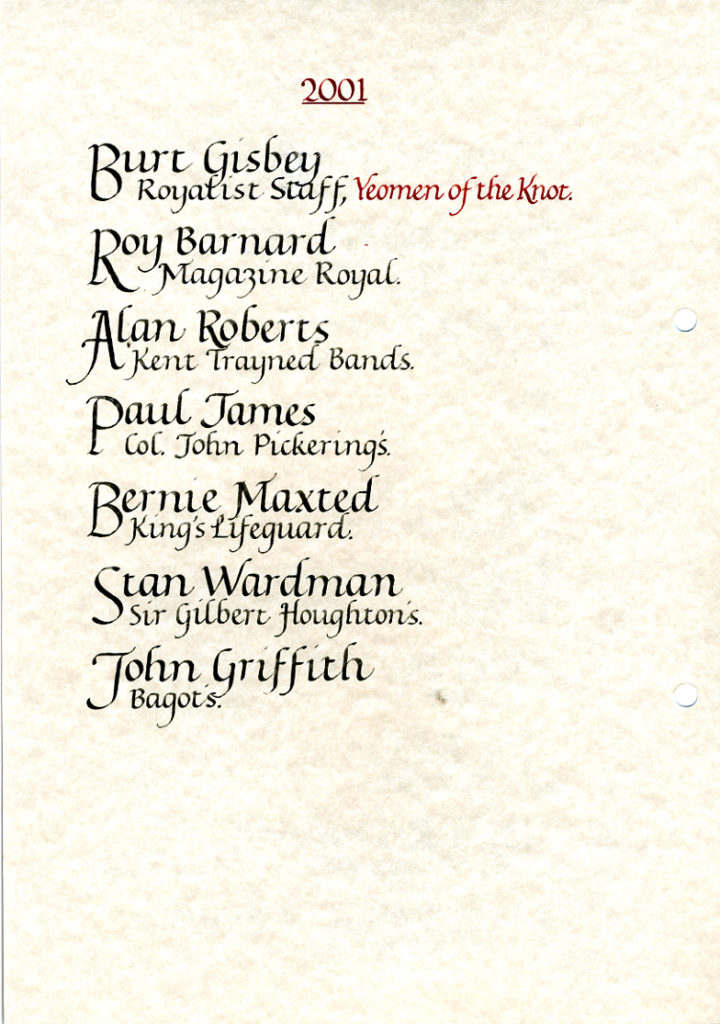 2001
Burt Gisbey
Royalist Staff, Yeomen of the Knot.
Roy Barnard
Magazine Royal.
Alan Roberts
Kent Trayned Bands.
Paul James
Col. John Pickering's.
Bernie Maxted
King's Lifeguard.
Stan Wardman
Sir Gilbert Houghton's.
John Griffith
Bagot's.